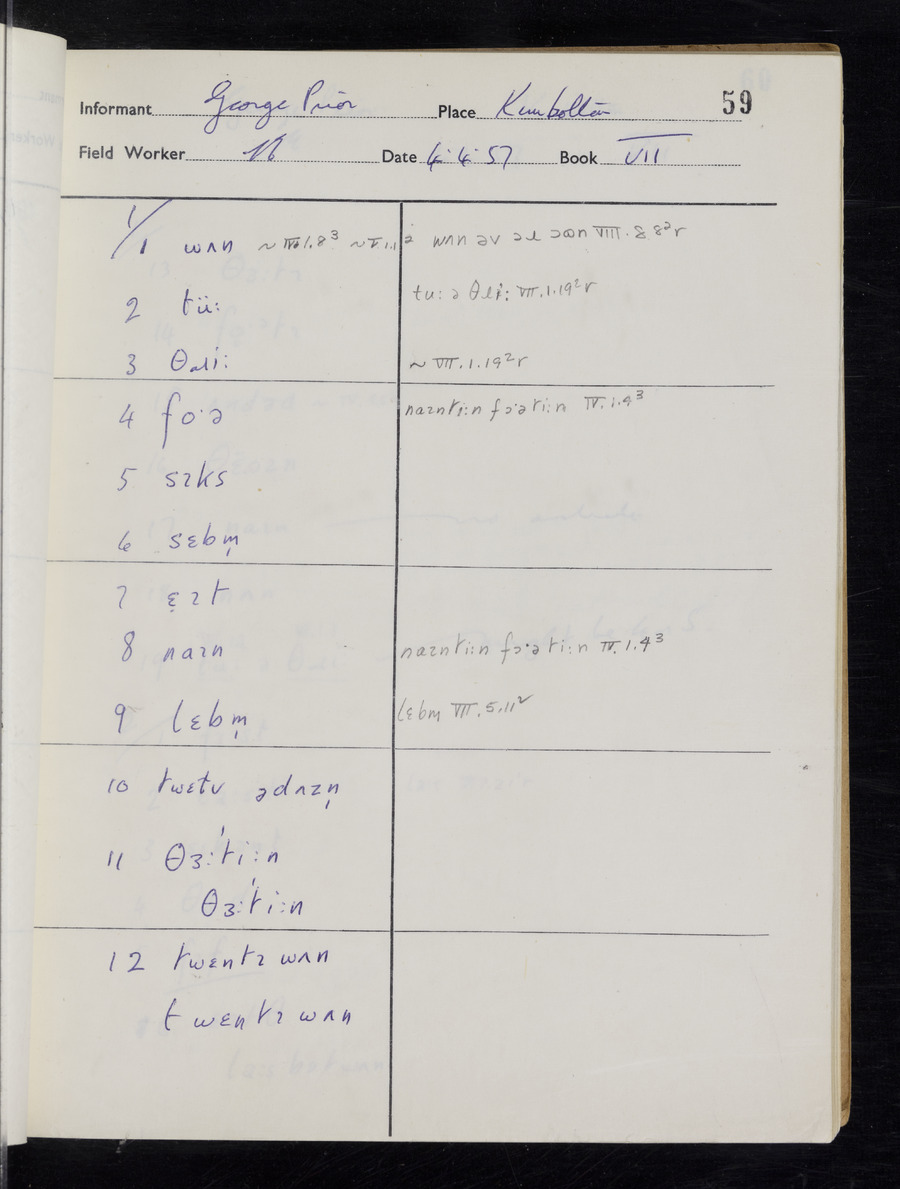 Informant George Prior Place Kimbolton 59
Field Worker Date 4.4.57 Book VII
1/
1 wʌn ~ ~ V.1.1² wʌn əv əɪ ɔən VIII.8.8²r
2 tü: tu: ə θɹi: VII.1.19²r
3 θɹi: ~ VII.1.19²r
4 fo·ə naɪnti:n fɔ·əti:n IV.1.4³
5 sɪks
6 sɛbm̩
7 ɛ̜ɪt
8 naɪn naɪnti:n fɔ·əti:n IV.1.4³
9 lɛbm̩ lɛbm VII.5.11²
10 twɛtv ədʌzn̩
11 θɜ:ˈti:n
θɜ:ˈti:n
12 twɛntɪ wʌn
twɛntɪ wʌn